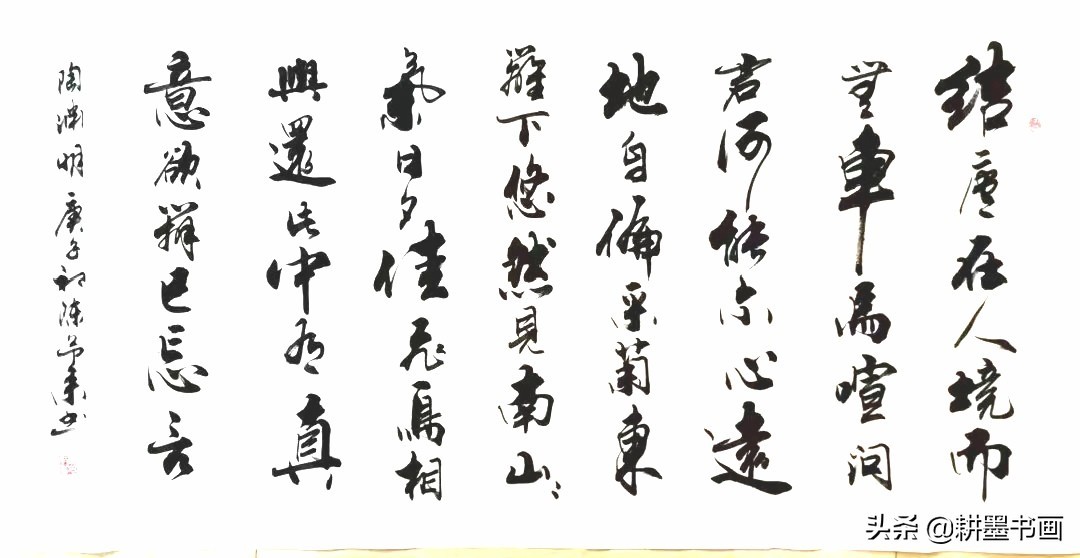 結廬在人境而
無車馬喧问
君何能尔心遠
地自偏采菊東
籬下悠然見南山〻
氣日夕佳飛鳥相
與還此中有真
意欲辨已忘言
陶渊明庚子初陈书
头条 @耕墨书画